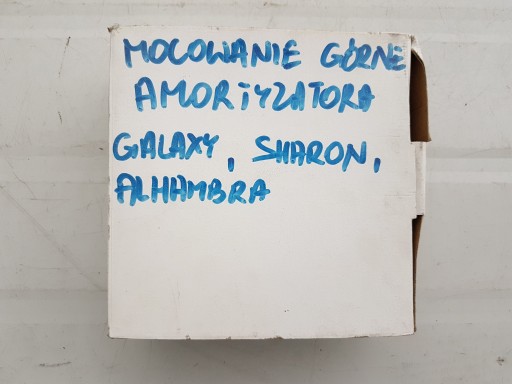 MOCOWANIE GÓRNE
AMORTYZATORA
GALAXY, SHARON,
ALHAMBRA